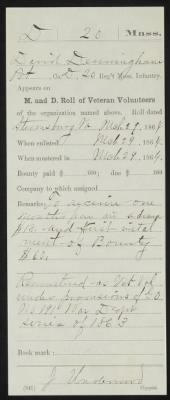 D 20 Mass.
David Dunningham
Pvt., Co. D, 20 Reg't Mass. Infantry.
Appears on
M. and D. Roll of Veteran Volunteers
of the organization named above. Roll dated
Mch 29, 1864.
When enlisted Mch 29, 1864.
When mustered in Mch 29, 1864.
Bounty paid $ 100; due $ 100
Company to which assigned
Remarks: To receive one
month's pay in advance
$13. and first instal
ment of Bounty
$60.
Remustered as Vet Vol
under provisions of G.O.
No. 191 War Dept
series of 1863
Book mark:
J Underwood
(341) Copyist.